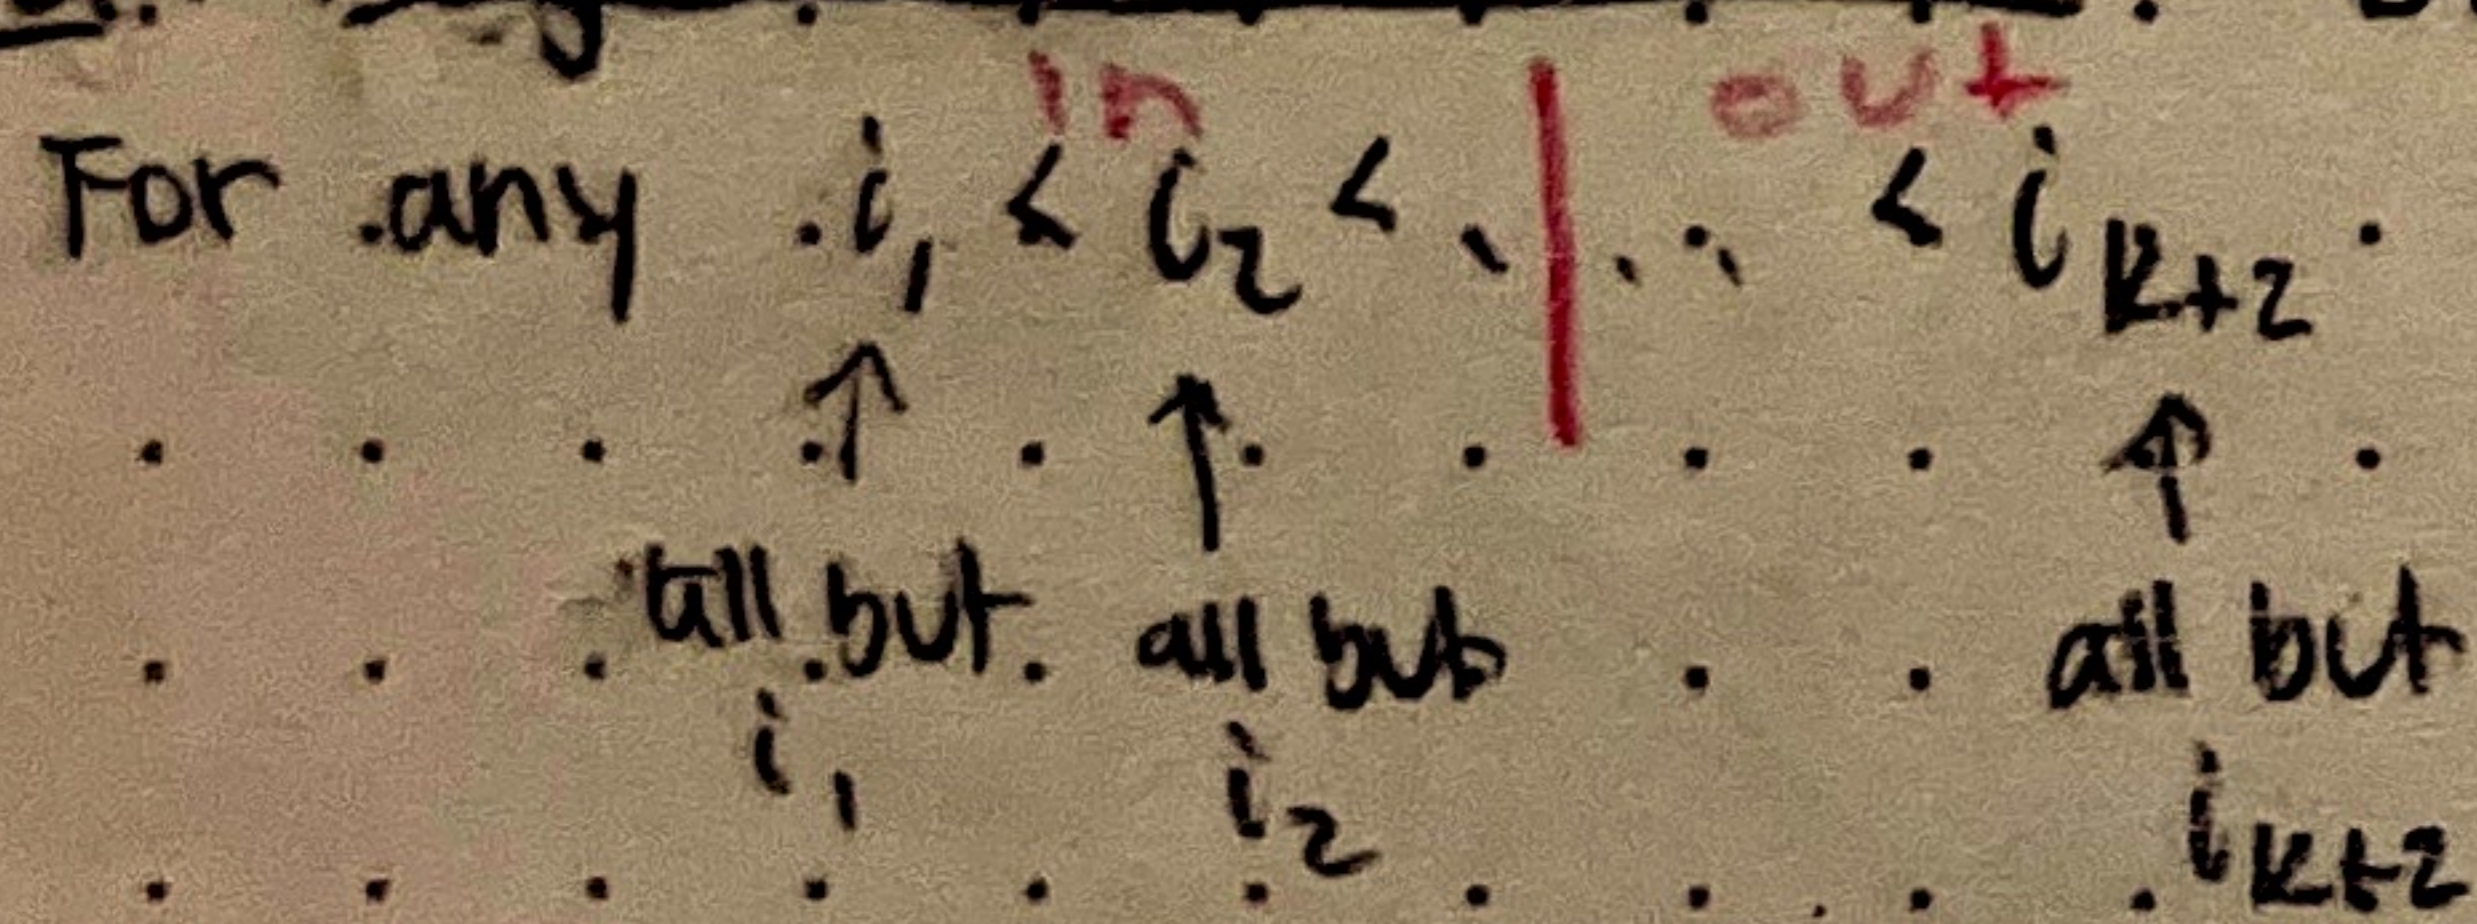 in | out
For any i₁ < i₂ < ... < iₖ₊₂
↑ ↑ ↑
all but all but all but
i₁ i₂ iₖ₊₂